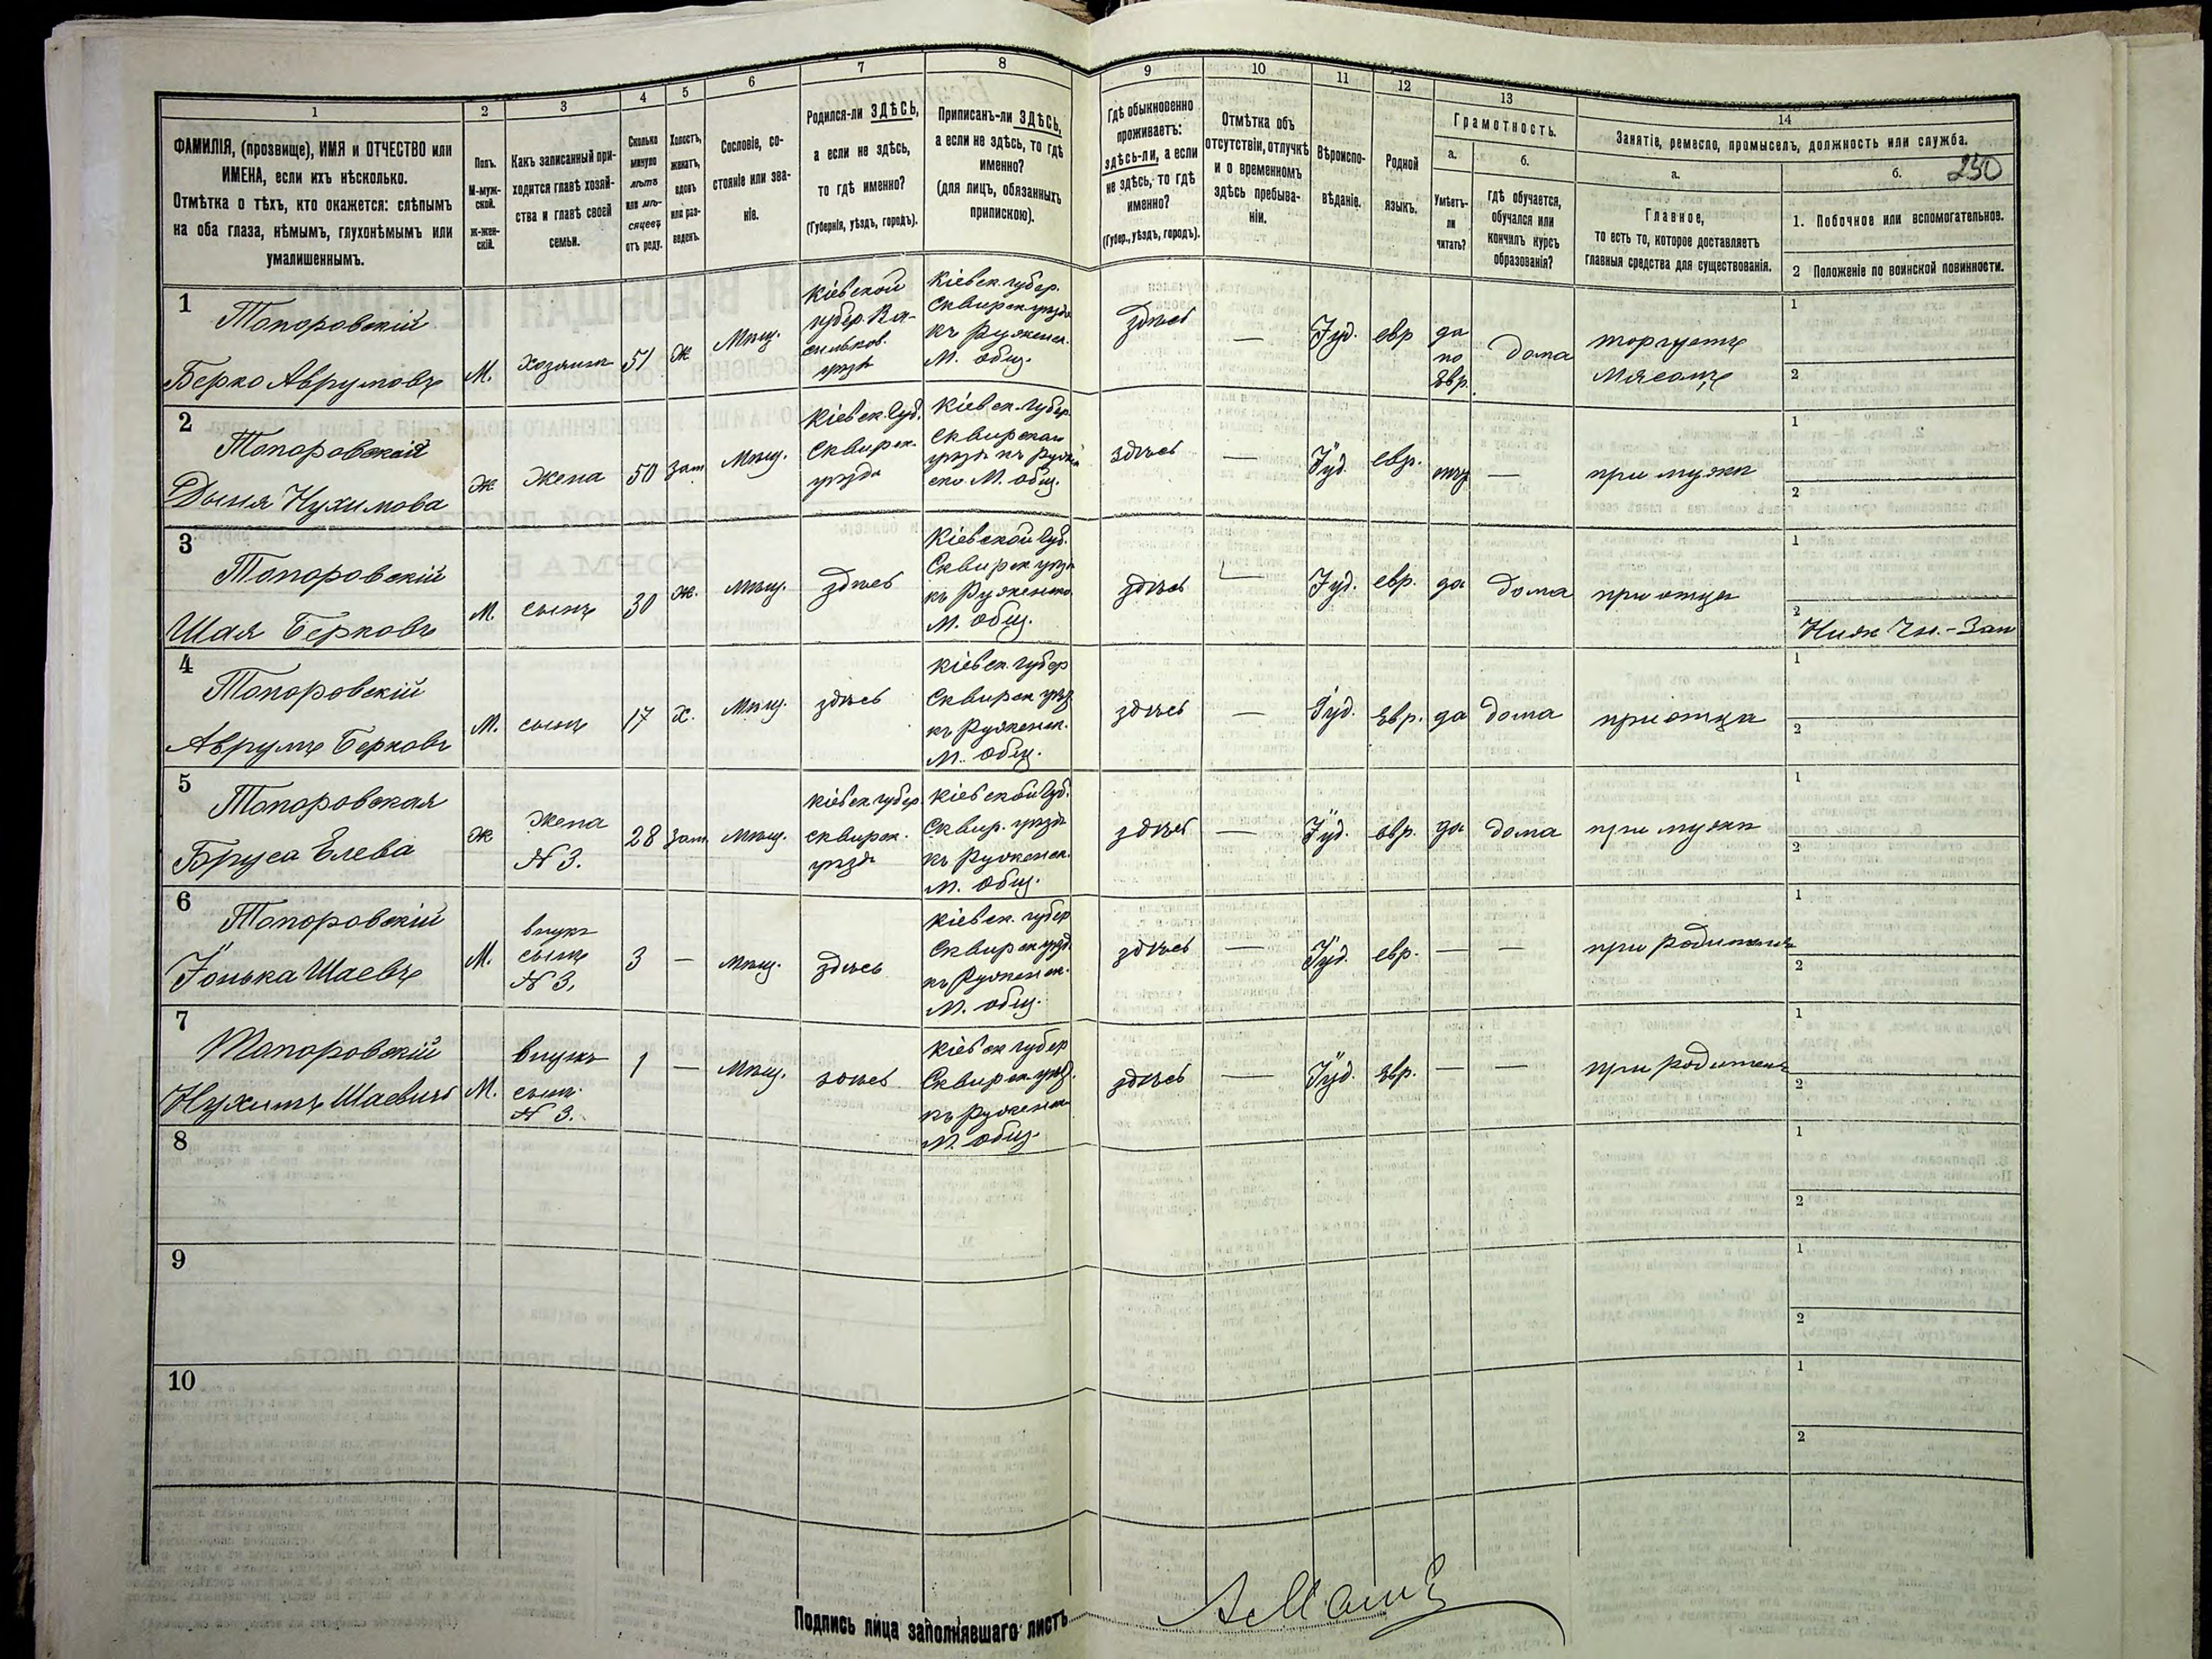 1
2
3
4
5
6
7
8
9
10
11
12
13
14
ФАМИЛІЯ, (прозвище), ИМЯ и ОТЧЕСТВО или
ИМЕНА, если ихъ нѣсколько.
Отмѣтка о тѣхъ, кто окажется: слѣпымъ
на оба глаза, нѣмымъ, глухонѣмымъ или
умалишеннымъ.
Полъ.
М-муж-
ской.
Ж-жен-
скій.
Какъ записанный при-
ходится главѣ хозяй-
ства и главѣ своей
семьи.
Сколько
минуло
лѣтъ
или мѣ-
сяцевъ
отъ роду.
Холостъ,
женатъ,
вдовъ
или раз-
веденъ.
Сословіе, со-
стояніе или зва-
ніе.
Родился-ли ЗДѢСЬ,
а если не здѣсь,
то гдѣ именно?
(Губернія, уѣздъ, городъ).
Приписанъ-ли ЗДѢСЬ,
а если не здѣсь, то гдѣ
именно?
(для лицъ, обязанныхъ
припискою).
Гдѣ обыкновенно
проживаетъ:
здѣсь-ли, а если
не здѣсь, то гдѣ
именно?
(Губер., уѣздъ, городъ).
Отмѣтка объ
отсутствіи, отлучкѣ
и о временномъ
здѣсь пребыва-
ніи.
Вѣроиспо-
вѣданіе.
Родной
языкъ.
Грамотность.
а.
Умѣетъ-
ли
читать?
б.
гдѣ обучается,
обучался или
кончилъ курсъ
образованія?
Занятіе, ремесло, промыселъ, должность или служба.
а.
Главное,
то есть то, которое доставляетъ
главныя средства для существованія.
б.
250
1. Побочное или вспомогательное.
2 Положеніе по воинской повинности.
1
Топоровскій
Берко Аврумовъ
М.
хозяинъ
51
ж
Мѣщ.
Кіевской
губер. Ва-
сильков.
уѣзда
Кіевск. губер.
Сквирск. уѣзда
къ Руженск.
М. общ.
здѣсь
—
Іуд.
евр
да
по
Евр.
дома
торгуетъ
мясомъ
1
2
2
Топоровская
Дыня Нухимова
ж
жена
50
зам
Мѣщ.
Кіевск. Губ.
Сквирск.
уѣзда
Кіевск. Губер.
Сквирскаго
уѣзда къ Ружен
ско М. общ.
здѣсь
—
Іуд.
евр.
—
при мужѣ
1
2
3
Топоровскій
Шая Берковъ
М.
сынъ
30
ж.
Мѣщ.
здѣсь
Кіевской Губ.
Сквирск уѣзда
къ Руженско
М. общ.
здѣсь
—
Іуд.
евр.
да
дома
при отцѣ
1
2
4
Топоровскій
Аврумъ Берковъ
М.
сынъ
17
х.
Мѣщ.
здѣсь
Кіевск. губер
Сквирск уѣз
къ Руженск.
М. общ.
здѣсь
—
Іуд.
Евр.
да
дома
при отца
1
2
5
Топоровская
Бруса Елева
ж
Жена
N 3.
28
зам
Мѣщ.
Кіевск. губер.
сквирск.
уѣзда
Кіевской Губ.
Сквир. уѣзда
къ Руженск.
М. общ.
здѣсь
—
Іуд.
евр.
да
дома
при мужѣ
1
2
6
Топоровскій
Іонька Шаевъ
М.
внукъ
сынъ
N 3,
3
—
Мѣщ.
здѣсь
Кіевск. губер
Сквирск уѣзд.
къ Руженск.
М. общ.
здѣсь
—
Іуд.
евр.
—
—
при родителѣ
1
2
7
Топоровскій
Нухимъ Шаевичъ
М.
внукъ
сынъ
N 3.
1
—
Мѣщ.
здѣсь
Кіевск губер
Сквирск. уѣзд.
къ Руженск
М. общ.
здѣсь
—
Іуд.
Евр.
—
—
при родителѣ
1
2
8
1
2
9
1
2
10
1
2
Подпись лица заполнявшаго листъ